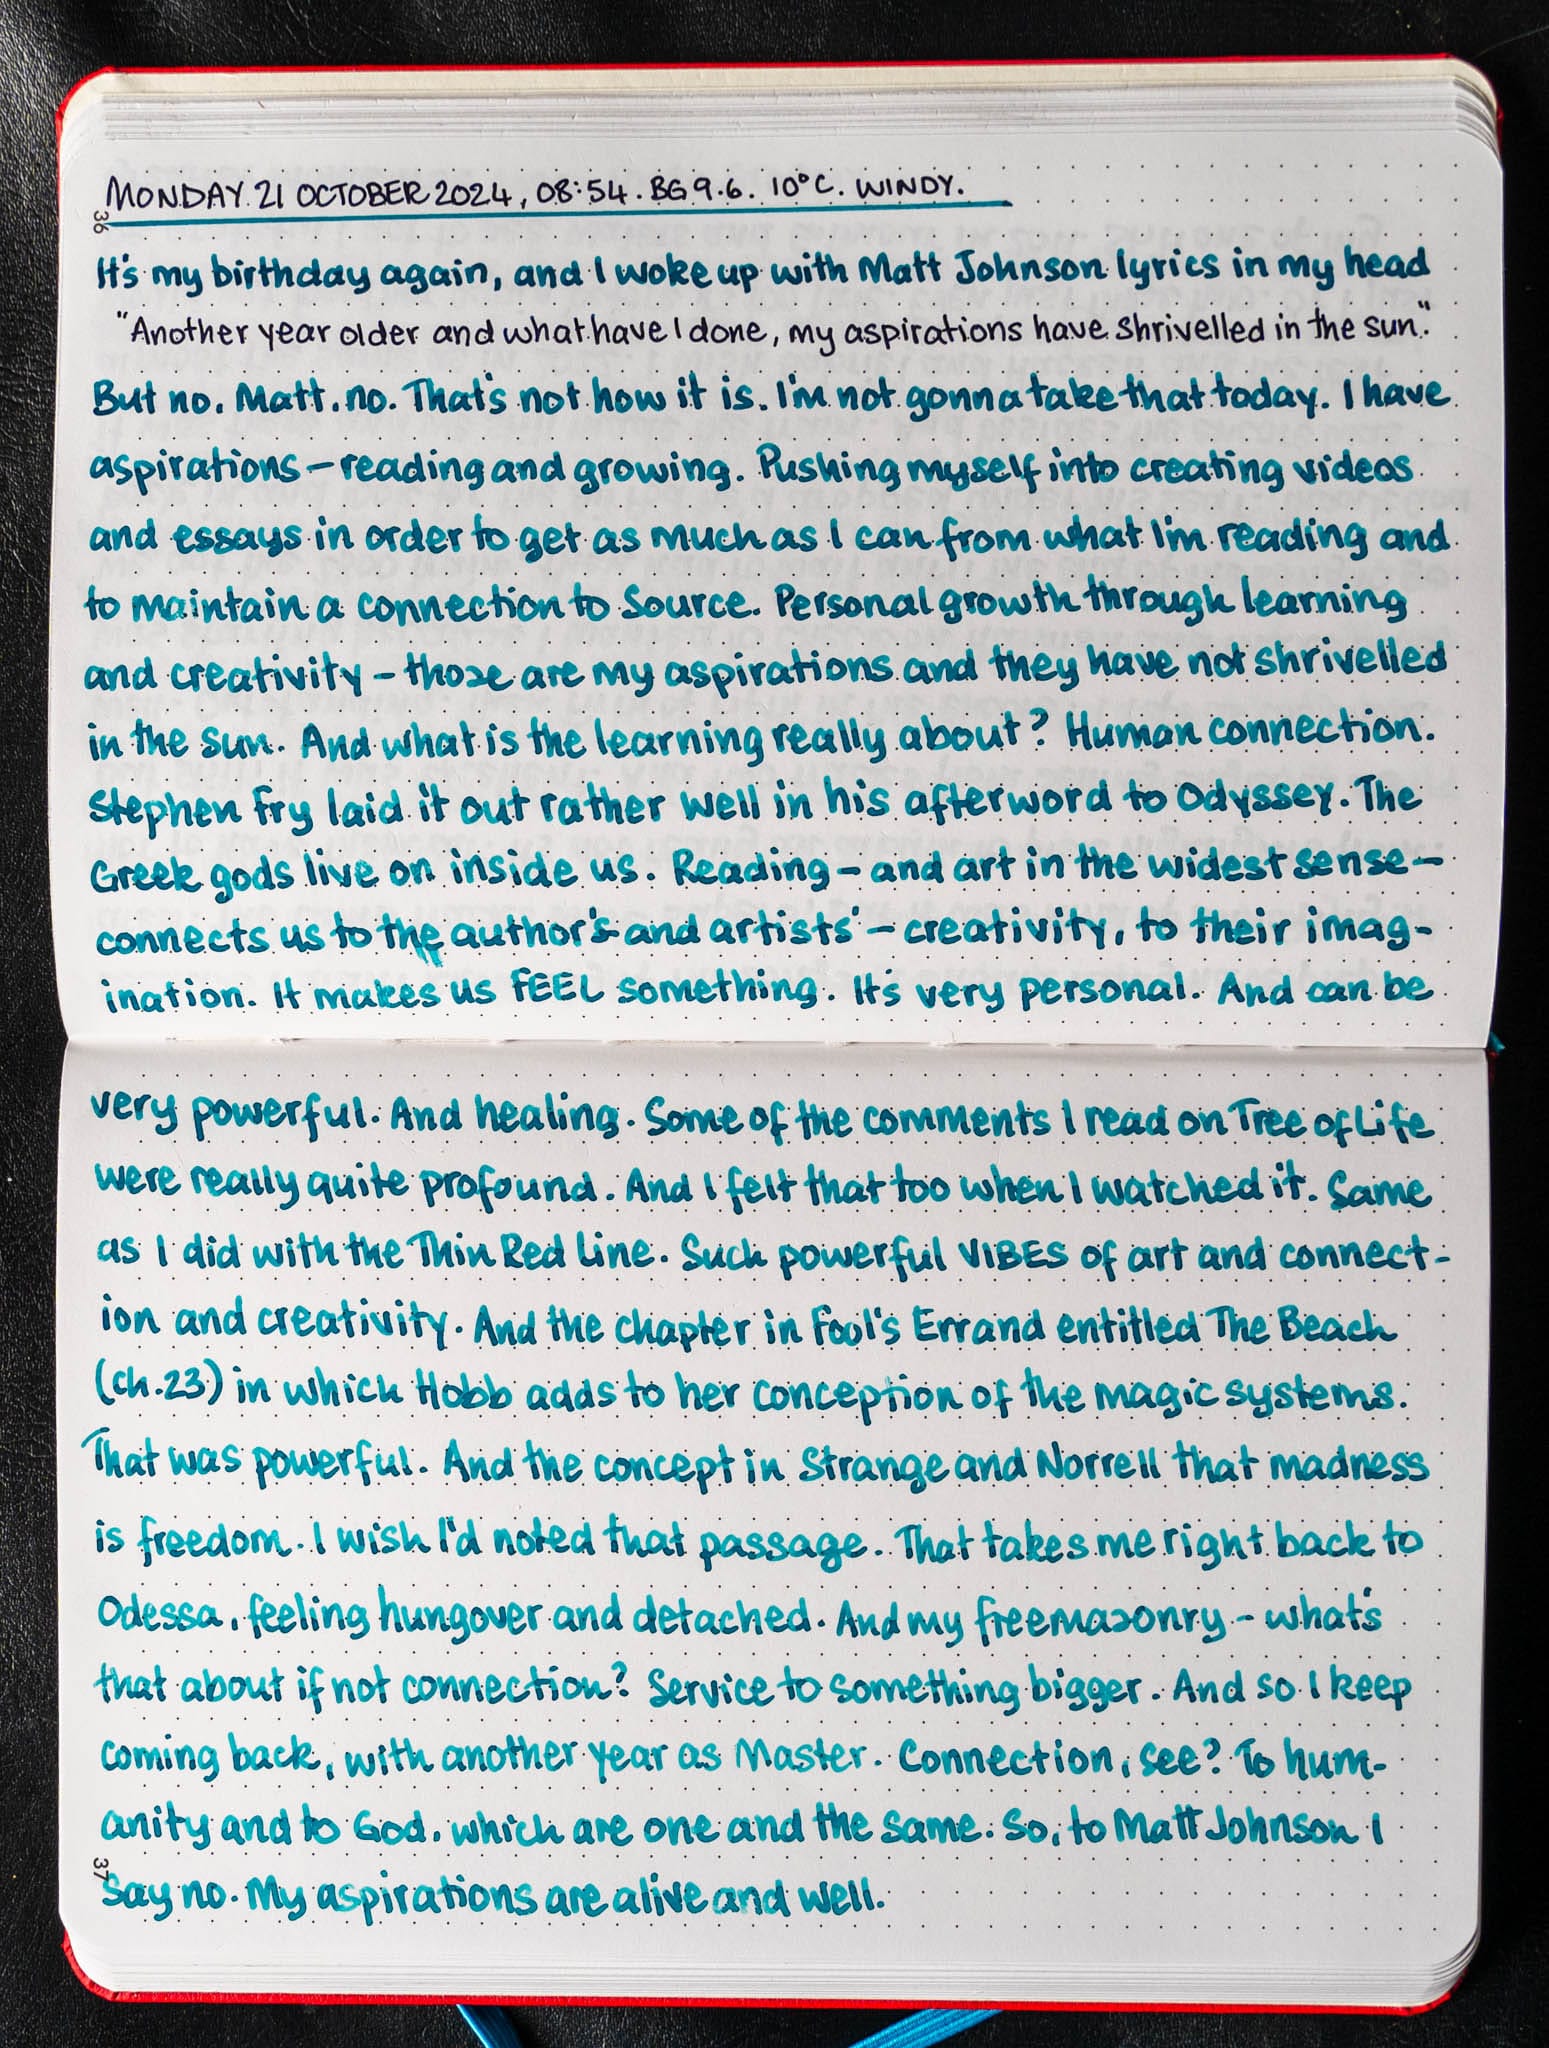 MONDAY 21 OCTOBER 2024, 08:54. BG 9.6. 10°C. WINDY.
36
It's my birthday again, and I woke up with Matt Johnson lyrics in my head
"Another year older and what have I done, my aspirations have shrivelled in the sun."
But no, Matt, no. That's not how it is. I'm not gonna take that today. I have
aspirations – reading and growing. Pushing myself into creating videos
and essays in order to get as much as I can from what I'm reading and
to maintain a connection to Source. Personal growth through learning
and creativity – those are my aspirations and they have not shrivelled
in the sun. And what is the learning really about? Human connection.
Stephen Fry laid it out rather well in his afterword to Odyssey. The
Greek gods live on inside us. Reading – and art in the widest sense –
connects us to the author's – and artists' – creativity, to their imag-
ination. It makes us FEEL something. It's very personal. And can be
very powerful. And healing. Some of the comments I read on Tree of Life
were really quite profound. And I felt that too when I watched it. Same
as I did with the Thin Red Line. Such powerful VIBES of art and connect-
ion and creativity. And the chapter in Fool's Errand entitled The Beach
(ch.23) in which Hobb adds to her conception of the magic systems.
That was powerful. And the concept in Strange and Norrell that madness
is freedom. I wish I'd noted that passage. That takes me right back to
Odessa, feeling hungover and detached. And my freemasonry – what's
that about if not connection? Service to something bigger. And so I keep
coming back, with another year as Master. Connection, see? To hum-
anity and to God, which are one and the same. So, to Matt Johnson I
37
say no. My aspirations are alive and well.